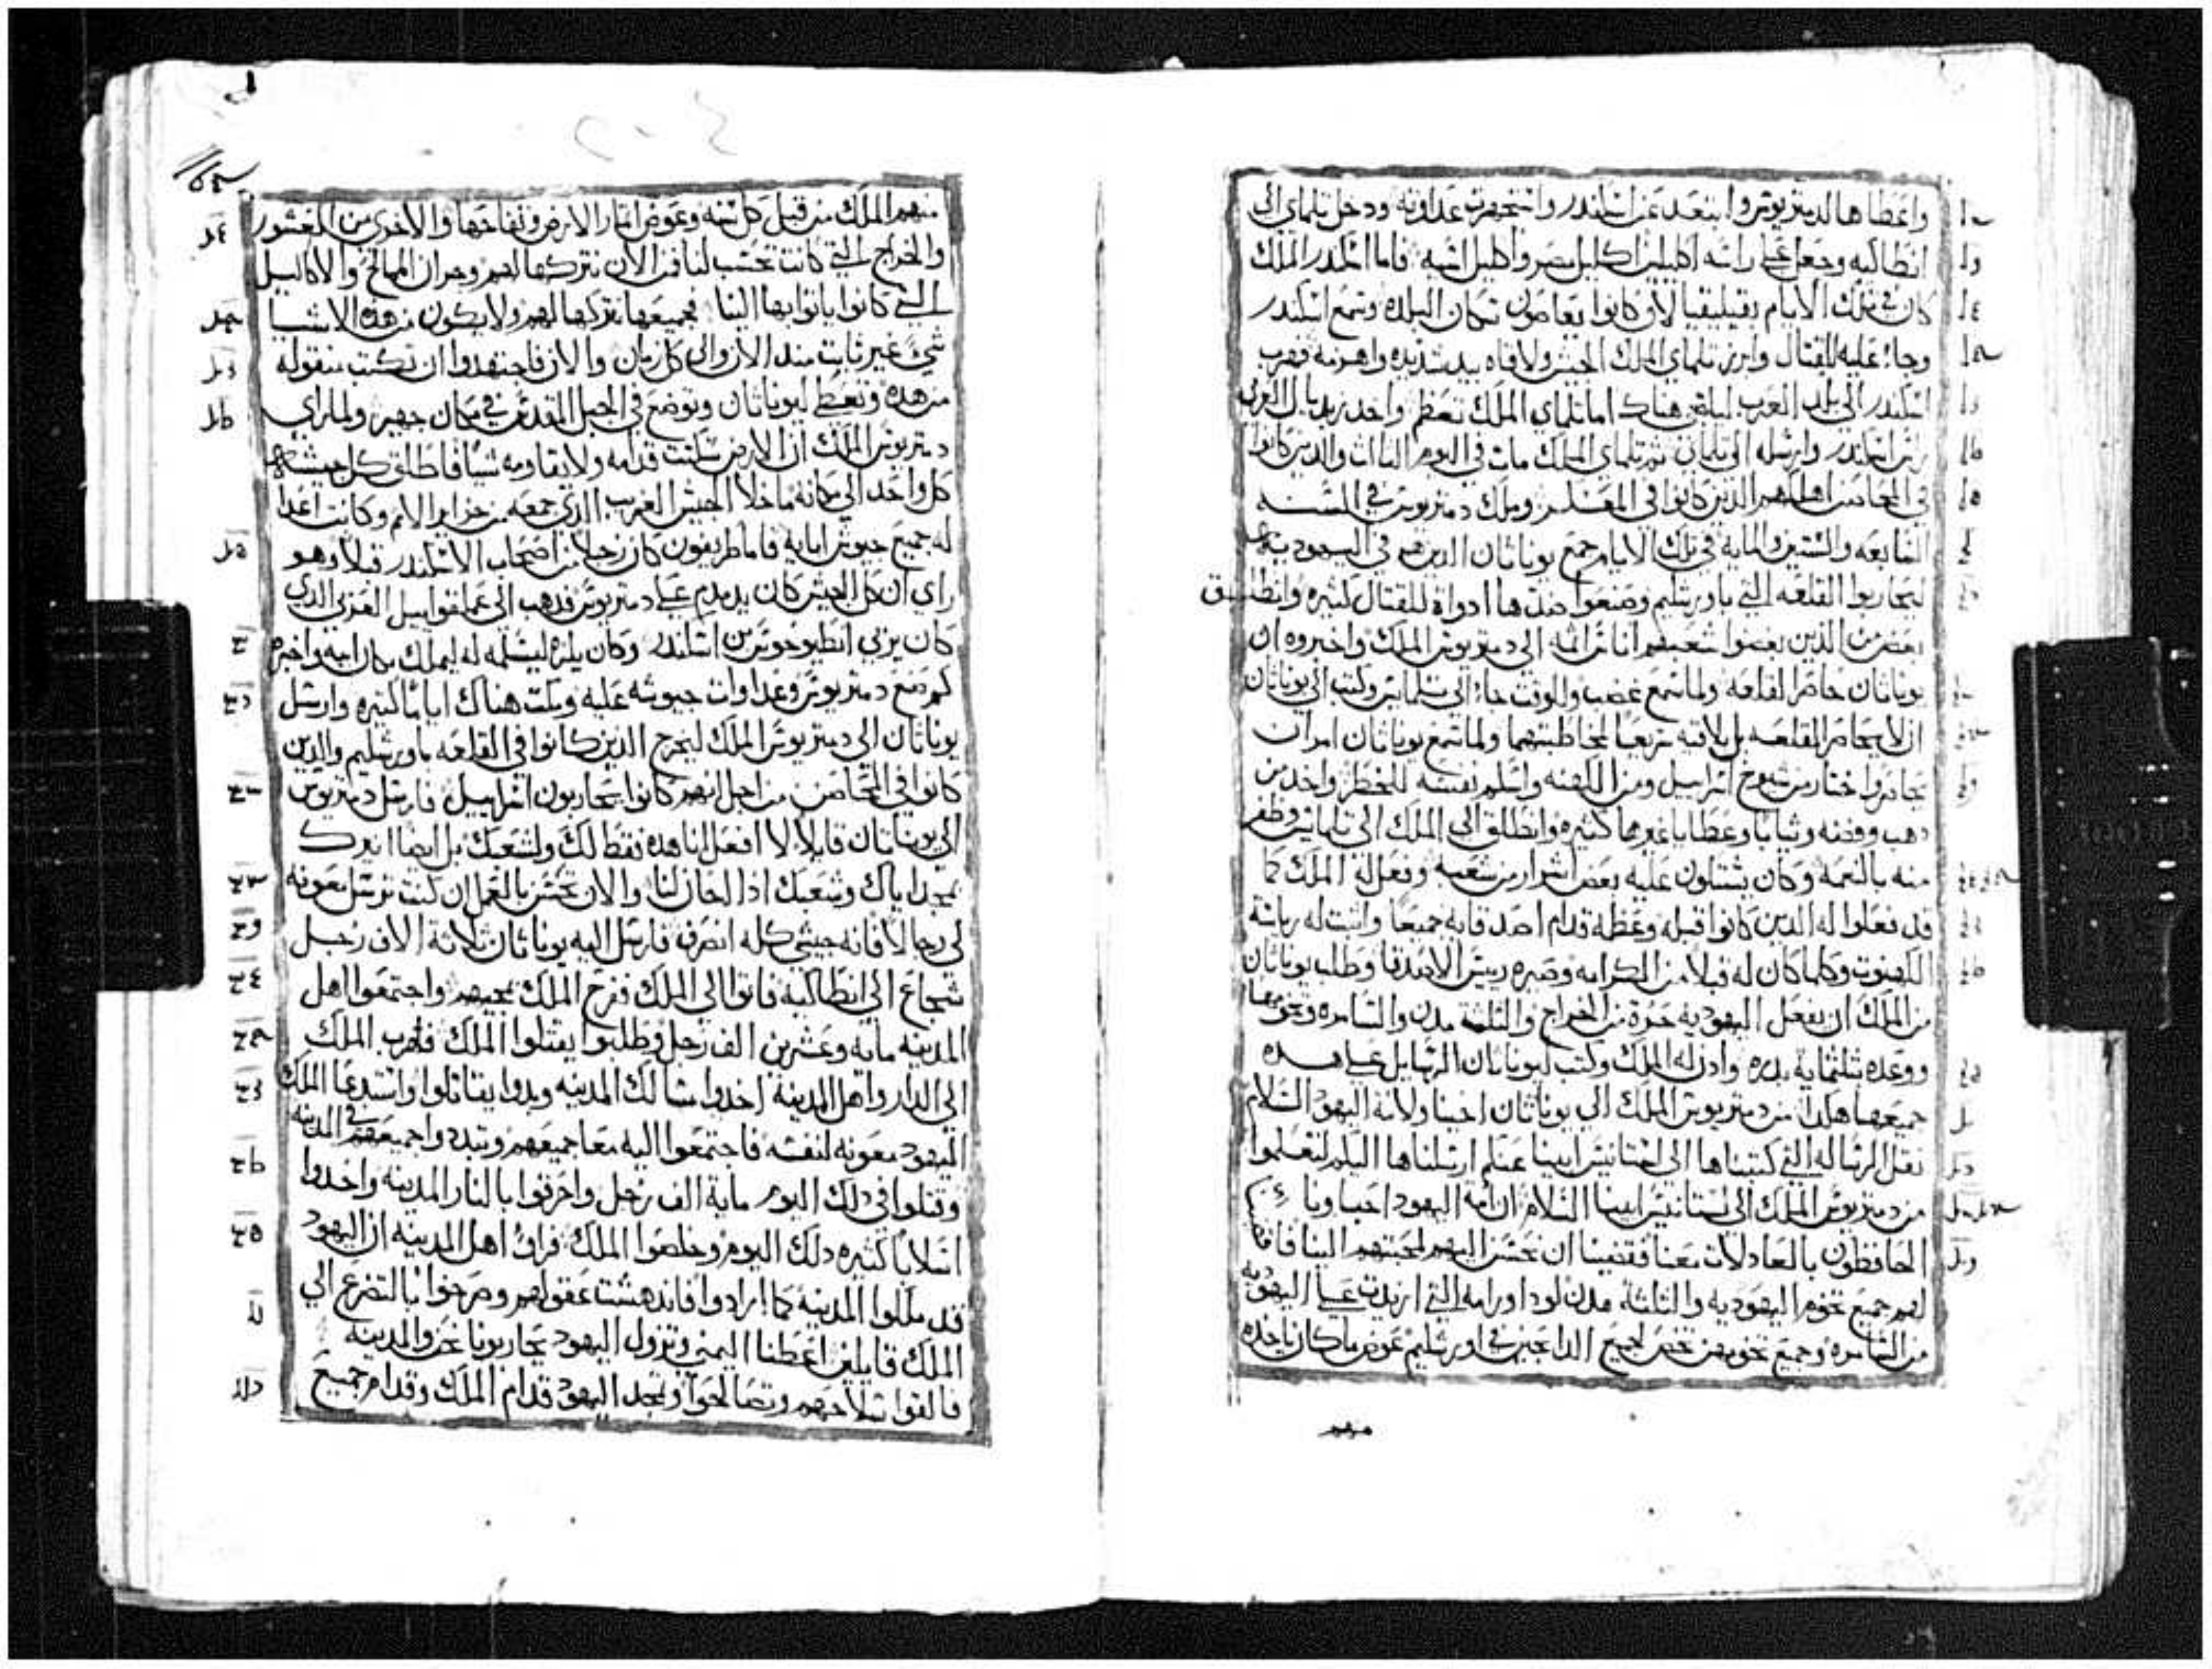 واعطاها لديمتريوس وابتعد عن اسكندر واستجهرت عداوته ودخل تلماي الى
انطاكيه وجعل على راسه اكليلين اكليل مصر واكليل اسيه فاما اسكندر الملك
كان في تلك الايام بقيليقيا لان كانوا يعاصون سكان البلده وسمع اسكندر
وجاء عليه للقتال وابرز تلماي الملك الجيش ولاقاه بيد شديده واهزمه فهرب
اسكندر الى بلد العرب ليلتجي هناك اما تلماي الملك تعظم واخد زبديال العربي
راس اسكندر وارسله الى تلماي ثم تلماي الملك مات في اليوم التالت والدين كانوا
في المحاصن اهلكهم الدين كانوا في المعسكر وملك دمتريوس في السنه
السابعه والستين والمايه في تلك الايام جمع يوناتان الدين هم في اليهوديه
ليحاربوا القلعه التي باورشليم وصنعوا ضدها ادواة للقتال كثيره وانطلق
بعض من الذين بغضوا شعبهم اناس اثمه الى دمتريوس الملك واخبروه ان
يوناتان حاصر القلعه ولما سمع غضب والوقت جاء الى تلمايس وكتب الى يوناتان
ان لا يحاصر القلعه بل يلاقيه سريعا لمخاطبتهما ولما سمع يوناتان امر ان
يحاصروا واختار من شيوخ اسراييل ومن الكهنه واسلم نفسه للخطر واخد من
دهب وفضه وثيابا وعطايا غيرها كثيره وانطلق الى الملك الى تلمايس وظفر
منه بالنعمه وكان يشتكون عليه بعض اشرار من شعبه وفعل له الملك كما
قد فعلوا له الدين كانوا قبله وعظمه قدام اصدقايه جميعا واثبت له رياسة
الكهنوت وكلما كان له قبلا من الكرامه وصيره رييس الاصدقا وطلب يوناتان
من الملك ان يفعل اليهوديه حرة من الخراج والثلثه مدن والسامره وتخومها
ووعده بثلثماية بدره وادن له الملك وكتب ليوناتان الرسايل على هده
جميعها هكدا من دمتريوس الملك الى يوناتان اخينا ولامة اليهود السلام
نقل الرساله التي كتبناها الى لستانيس ابينا عنكم ارسلناها اليكم لتعلموا
من دمتريوس الملك الى لستانيس ابينا السلام ان امة اليهود احباونا
الحافظون بالعادلات معنا فقضينا ان نحسن اليهم لمحبتهم الينا فاقمنا
لهم جميع تخوم اليهوديه والثلثة مدن لودا ورامه التي ازيدت على اليهوديه
من السامره وجميع تخومهن تختص لجميع الدابحين في اورشليم عوض ما كان ياخده
منهم
منهم الملك من قبل كل سنه وعوض اثمار الارض وتفاحها والاخرى من العشور
والخراج التي كانت تحسب لنا فمن الان نتركها لهم وجران الممالح والاكاليل
التي كانوا ياتوا بها الينا فجميعها نتركها لهم ولا يكون من هده الاشيا
شيء غير ثابت مند الان والى كل زمان والان فاجتهدوا ان تكتب منقوله
من هده وتعطى ليوناتان وتوضع في الجبل المقدس في مكان جهير ولما راى
دمتريوس الملك ان الارض سكنت قدامه ولا يقاومه شيا فاطلق كل جيشه
كل واحد الى مكانه ما خلا الجيش الغريب الدي جمعه من جزاير الامم وكانت اعدا
له جميع جيوش ابايه فاما طريفون كان رجلا من اصحاب الاسكندر قبلا وهو
راى ان كل الجيش كان يدمدم على دمتريوس فدهب الى عملقواييل العربي الدي
كان يربي انطيوخوس بن اسكندر وكان يلزه ليسلمه له ليملك مكان ابيه واخبره
كم صنع دمتريوس وعداوات جيوشه عليه ومكث هناك اياما كثيره وارسل
يوناتان الى دمتريوس الملك ليخرج الدين كانوا في القلعه باورشليم والدين
كانوا في المحاصن من اجل انهم كانوا يحاربون اسراييل فارسل دمتريوس
الى يوناتان قايلا لا افعل انا هده فقط لك ولشعبك بل ايضا ازيدك
مجدا اياك وشعبك ادا الحال لنا والان تحسن بالعمل ان كنت ترسل معونه
لي رجالا فانه جيشي كله انصرف فارسل اليه يوناتان ثلاثة الاف رجل
شجاع الى انطاكيه فاتوا الى الملك ففرح الملك بمجيهم واجتمعوا اهل
المدينه مايه وعشرين الف رجل وطلبوا يقتلوا الملك فهرب الملك
الى الدار واهل المدينة اخدوا مسالك المدينه وبدوا يقاتلوا واستدعا الملك
اليهود معونه لنفسه فاجتمعوا اليه معا جميعهم وتبددوا جميعهم في المدينه
وقتلوا في دلك اليوم ماية الف رجل واحرقوا بالنار المدينه واخدوا
اسلابا كثيره دلك اليوم وخلصوا الملك فراوا اهل المدينه ان اليهود
قد ملكوا المدينه كما ارادوا فاندهشت عقولهم وصرخوا بالتضرع الى
الملك قايلين اعطنا اليمنى وتزول اليهود يحاربونا نحن والمدينه
فالقوا سلاحهم وتصالحوا وتمجد اليهود قدام الملك وقدام جميع